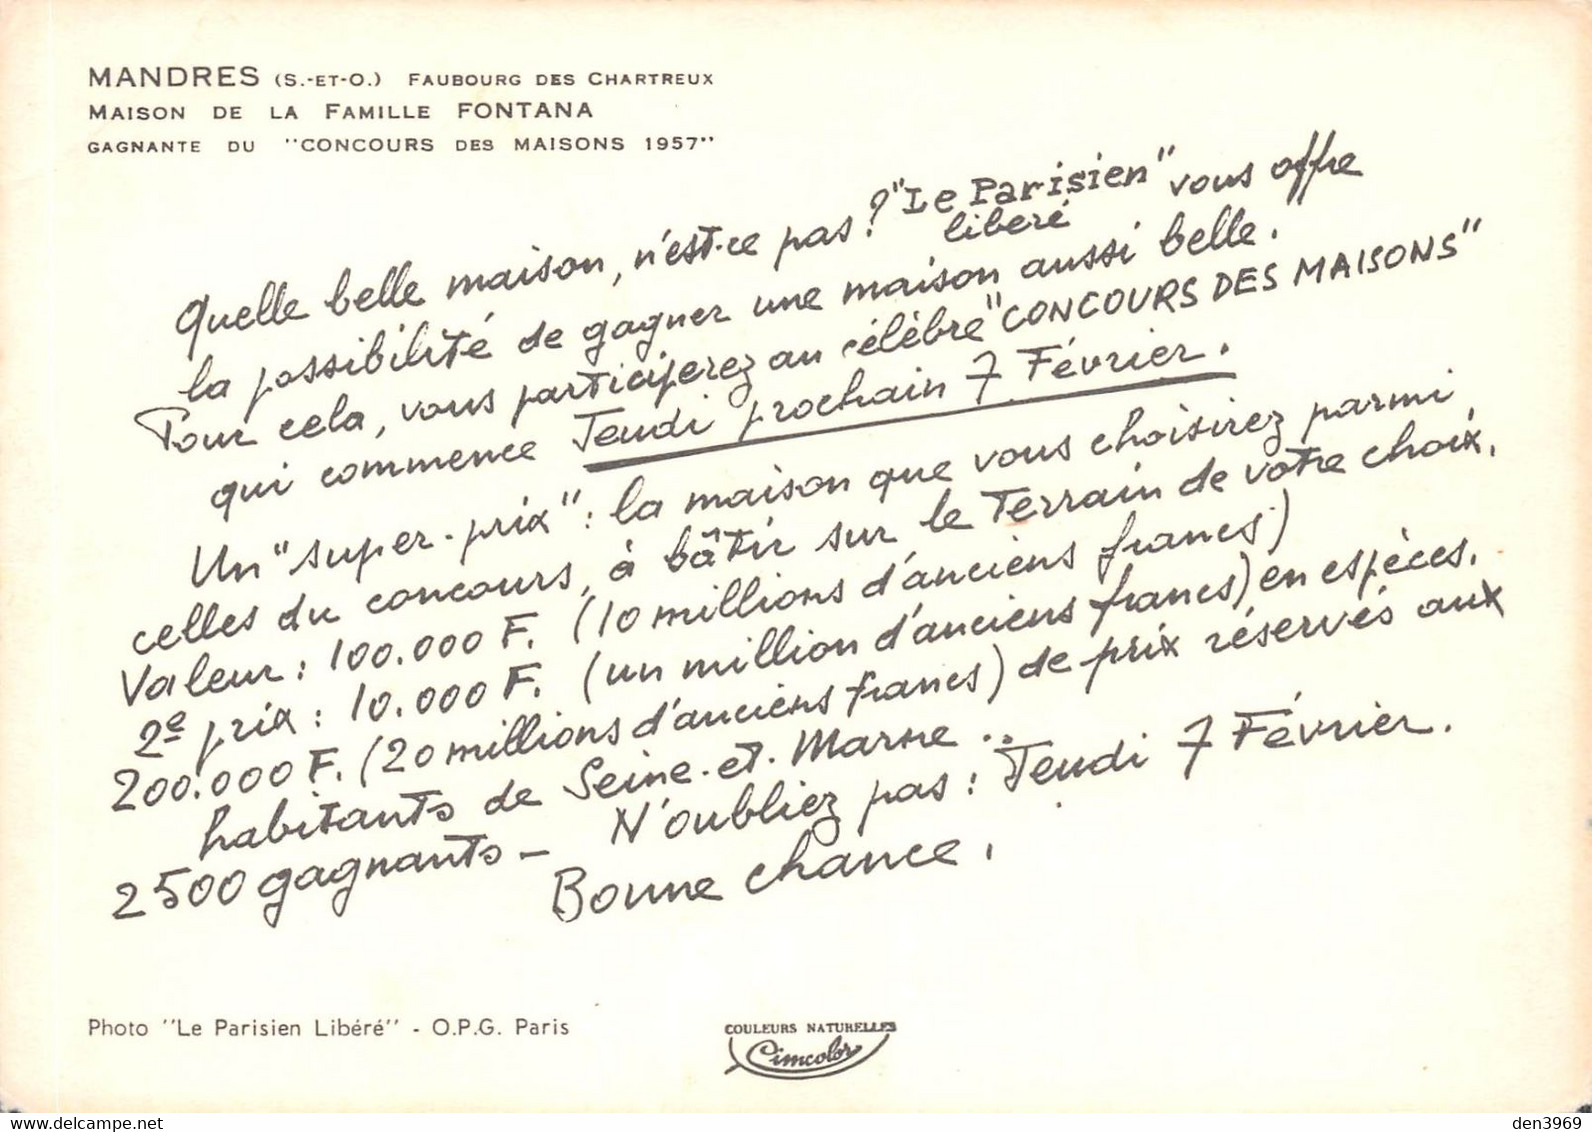 MANDRES (S.-ET-O.) FAUBOURG DES CHARTREUX
MAISON DE LA FAMILLE FONTANA
GAGNANTE DU "CONCOURS DES MAISONS 1957"
Quelle belle maison, n'est-ce pas ? "Le Parisien" vous offre
libéré
la possibilité de gagner une maison aussi belle.
Pour cela, vous participerez au célèbre "CONCOURS DES MAISONS"
qui commence Jeudi prochain 7 Février.
Un "super-prix" : la maison que vous choisirez parmi
celles du concours, à bâtir sur le terrain de votre choix.
Valeur : 100.000 F. (10 millions d'anciens francs)
2e prix : 10.000 F. (un million d'anciens francs) en espèces.
200.000 F. (20 millions d'anciens francs) de prix réservés aux
habitants de Seine-et-Marne..
2500 gagnants - N'oubliez pas : Jeudi 7 Février.
Bonne chance.
Photo "Le Parisien Libéré" - O.P.G. Paris
COULEURS NATURELLES
Cimcolor
den3969